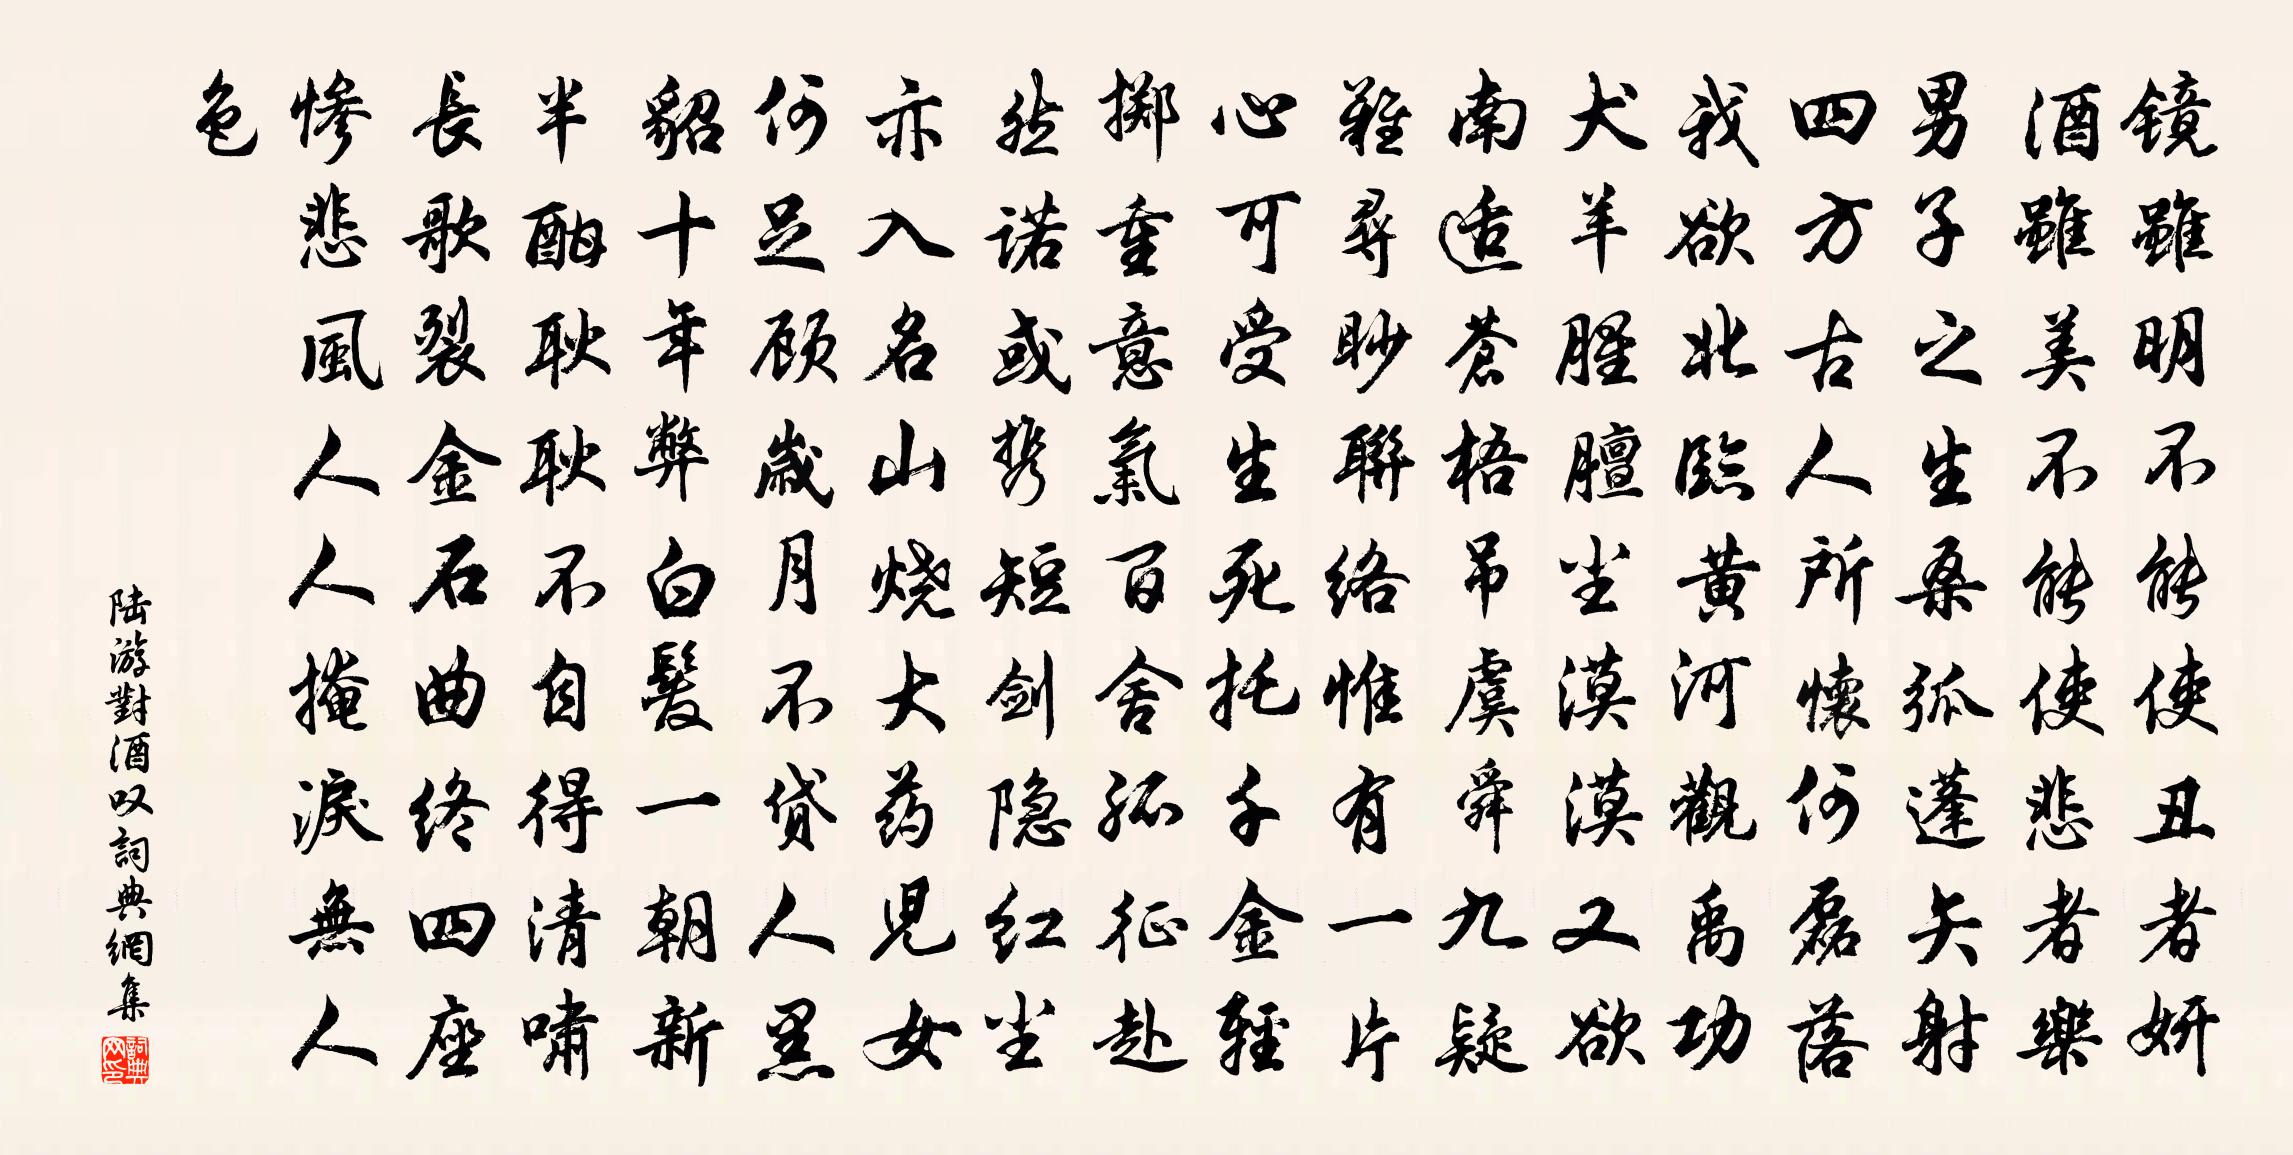 镜雖明不能使丑者妍
酒雖美不能使悲者樂
男子之生桑弧蓬矢射
四方古人所懷何磊落
我欲北臨黃河觀禹功
犬羊腥膻尘漠漠又欲
南适蒼梧吊虞舜九疑
難尋眇聯络惟有一片
心可受生死托千金輕
掷重意氣百舍孤征赴
然诺或携短剑隐红尘
亦入名山烧大药兒女
何足顾歲月不贷人黑
貂十年弊白髮一朝新
半酣耿耿不自得清嘯
長歌裂金石曲终四座
慘悲風人人掩淚無人
色
陆游對酒叹詞典網集
詞典网印